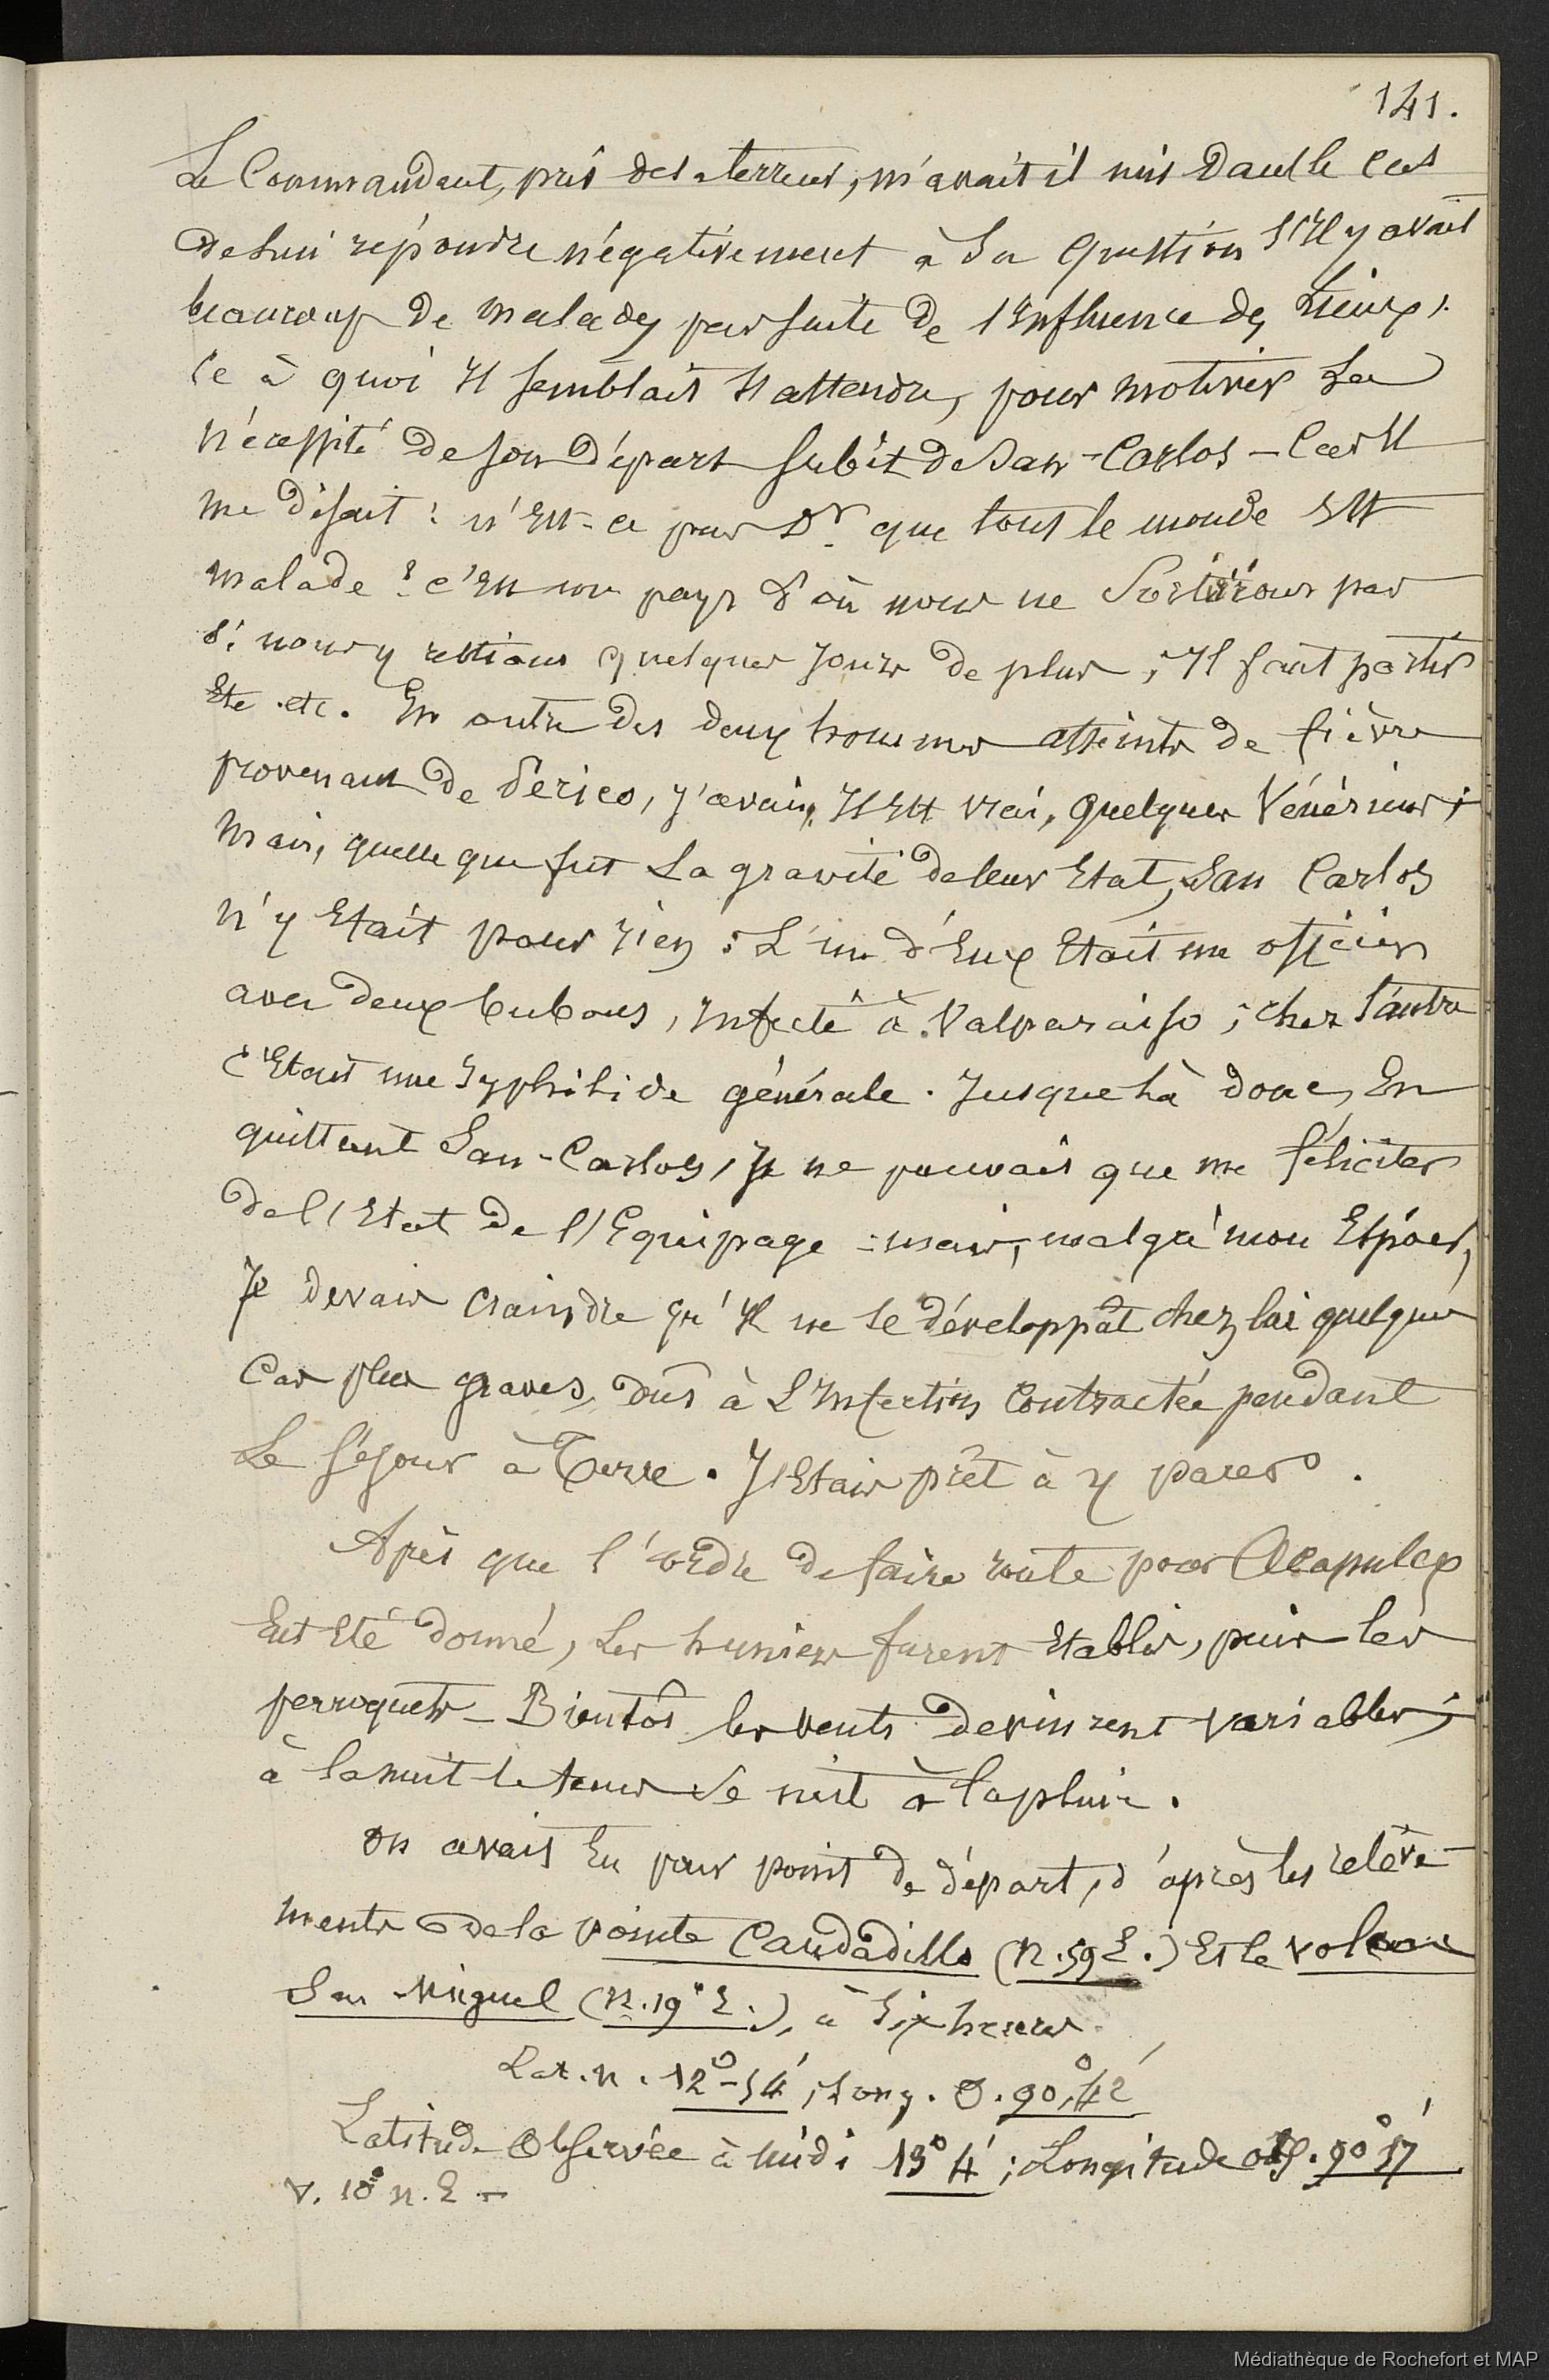 141.
Le Commandant, pris des aterreur, m'avait il mis Dans le Cas
de lui répondre négativement à Sa Question S'Il y avait
beaucoup De malades par suite De l'Influence des Lieux,
Ce à quoi Il semblait s'attendre, pour motiver La
nécessité De son Départ subit De San-Carlos - Car Il
me Disait : n'Est-ce pas Dr. que tout le monde Est
malade ? c'Est un pays d'où nous ne Sortirons pas
si nous y restions quelques Jours De plus ; Il faut partir
Etc. etc. En outre Des Deux hommes atteints de fièvre
provenant De Perico, J'avais, Il Est vrai, Quelques Vénériens ;
Mais, quelle que fut La gravité de leur Etat, San Carlos
n'y Etait pour rien : L'un d'Eux Etait un officier
avec Deux bubons, Infecté à Valparaiso ; chez l'autre
c'Etait une Syphilide générale. Jusque là donc, En
quittant San-Carlos, Je ne pouvais que me féliciter
De l'Etat De l'Equipage : mais, malgré mon Espoir,
Je devais Craindre qu'Il ne se développât chez lui quelques
Cas plus graves, Dus à L'Infection Contractée pendant
Le séjour à Terre. J'Etais prêt à y parer.
Après que l'ordre De faire route pour Acapulco
Eut Eté Donné, Les huniers furent Etablis, puis les
perroquets - Bientôt les vents Devinrent variables ;
à la nuit le temps Se mit à la pluie.
On avait Eu pour point De départ, d'après les relève-
ments de la pointe Candadillo (N.59 E.) Et le volcan
San Miguel (N.19° E.), à Six heures
Lat. N. 12°-54' ; Long. O. 90°,42'
Latitude Observée à Midi 13° 4' ; Longitude obs. 90° 57'
V. 18° N. E -
Médiathèque de Rochefort et MAP